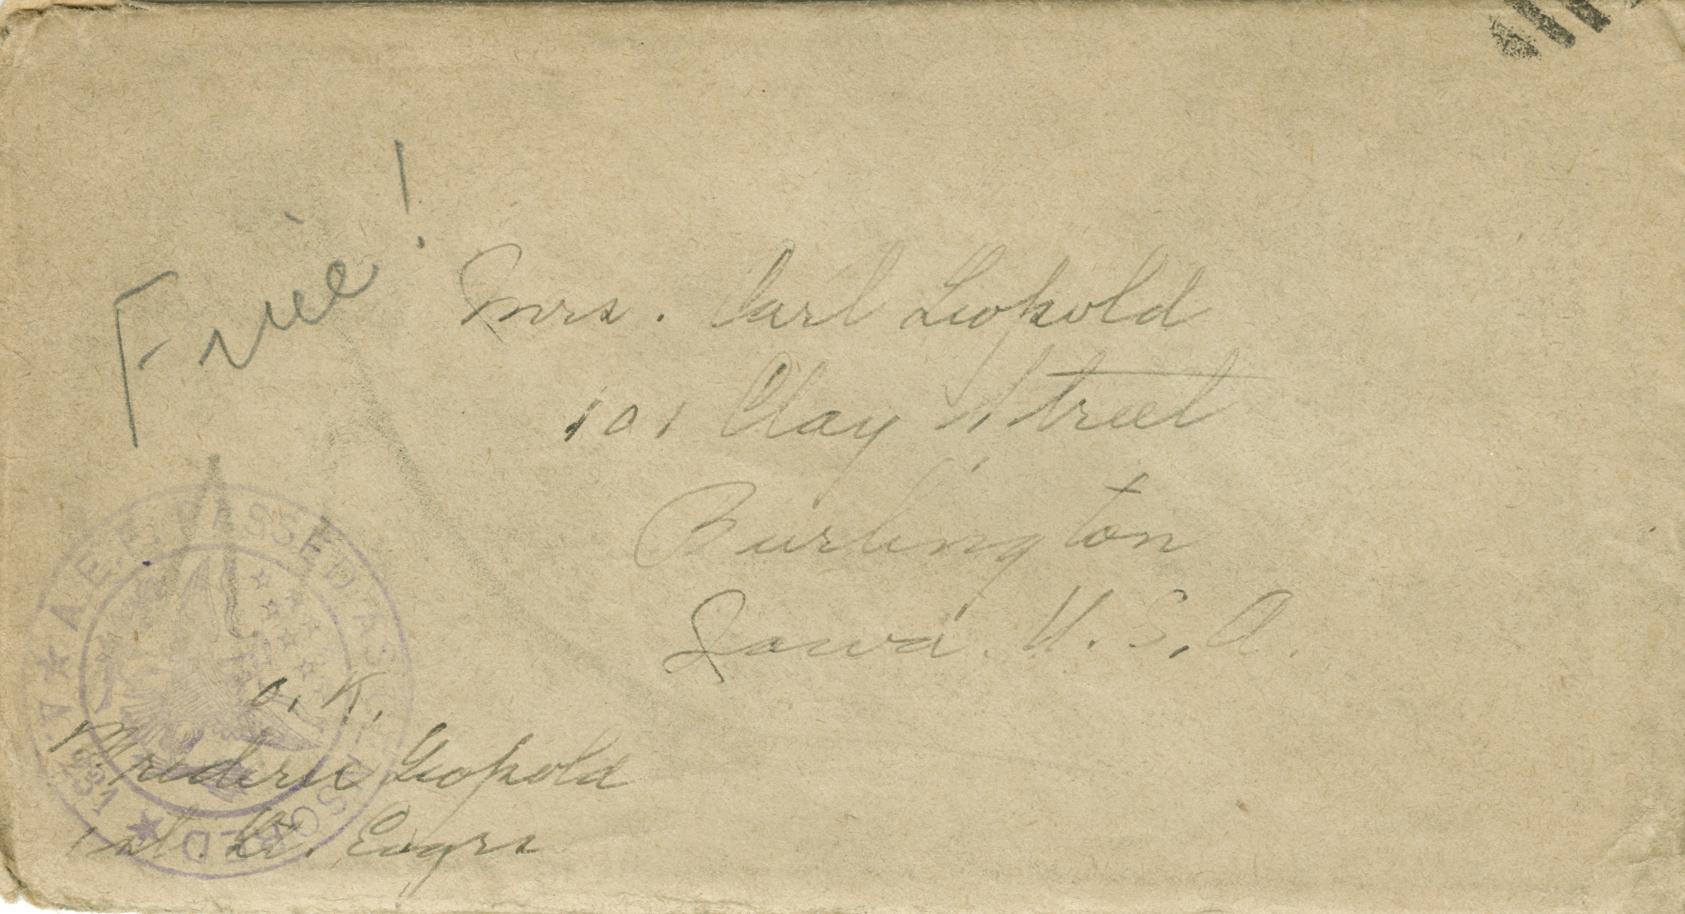 Free!
Mrs. Carl Leopold
101 Clay Street
Burlington
Iowa. U.S.A.
A.E.F. PASSED AS CENSORED
O.K.
Frederic Leopold
1st. Lt. Engrs